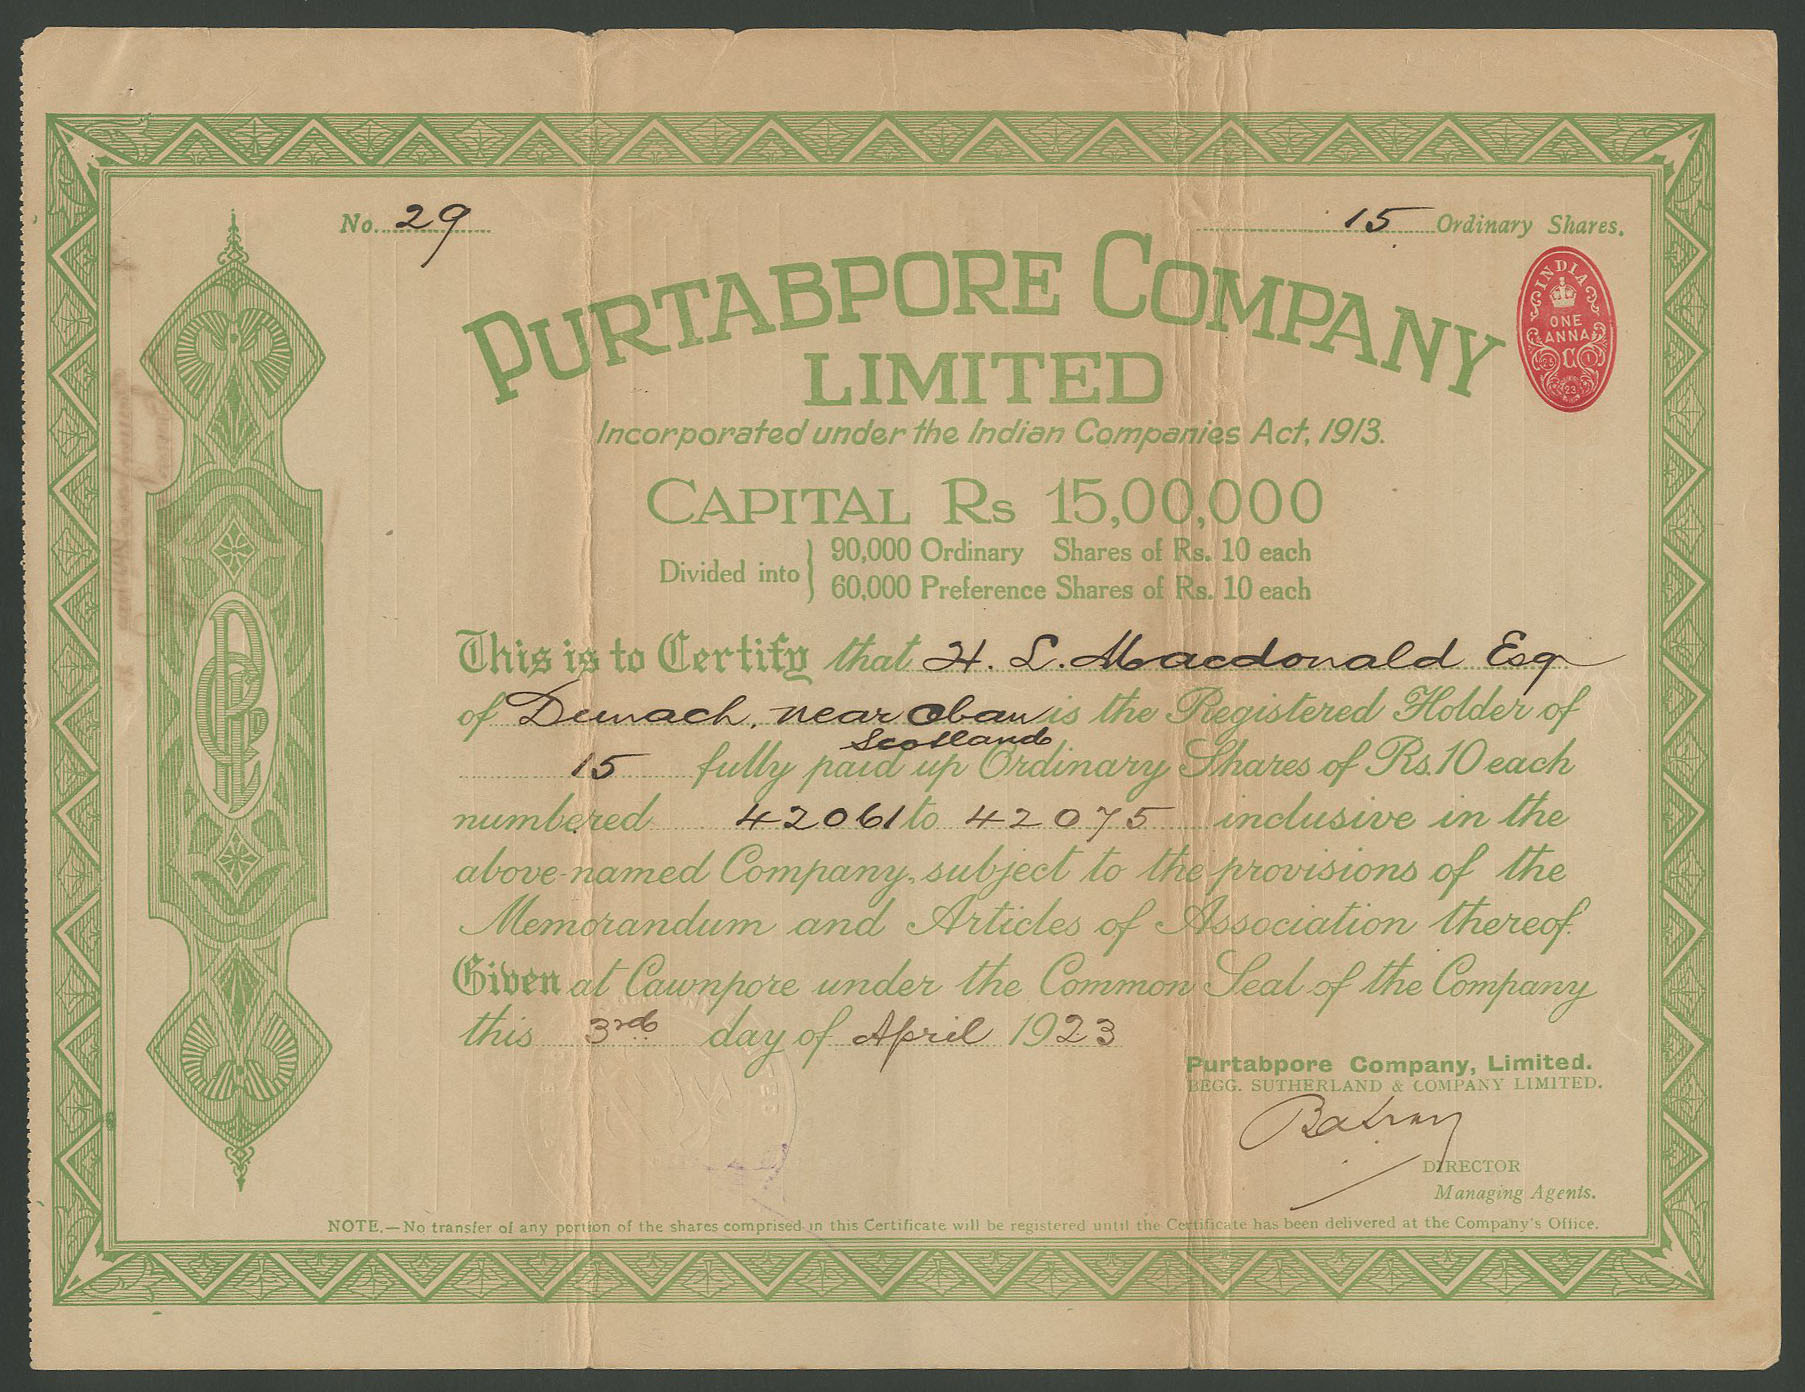 No. 29
15 Ordinary Shares.
INDIA
ONE
ANNA
C
23
PURTABPORE COMPANY
LIMITED
Incorporated under the Indian Companies Act, 1913.
CAPITAL Rs 15,00,000
Divided into } 90,000 Ordinary Shares of Rs. 10 each
60,000 Preference Shares of Rs. 10 each
This is to Certify that H. L. Macdonald Esq
of Dunach, near Oban is the Registered Holder of
Scotland
15 fully paid up Ordinary Shares of Rs. 10 each
numbered 42061 to 42075 inclusive in the
above-named Company, subject to the provisions of the
Memorandum and Articles of Association thereof.
Given at Cawnpore under the Common Seal of the Company
this 3rd day of April 1923
Purtabpore Company, Limited.
BEGG. SUTHERLAND & COMPANY LIMITED.
DIRECTOR
Managing Agents.
NOTE.—No transfer of any portion of the shares comprised in this Certificate will be registered until the Certificate has been delivered at the Company's Office.
PCL